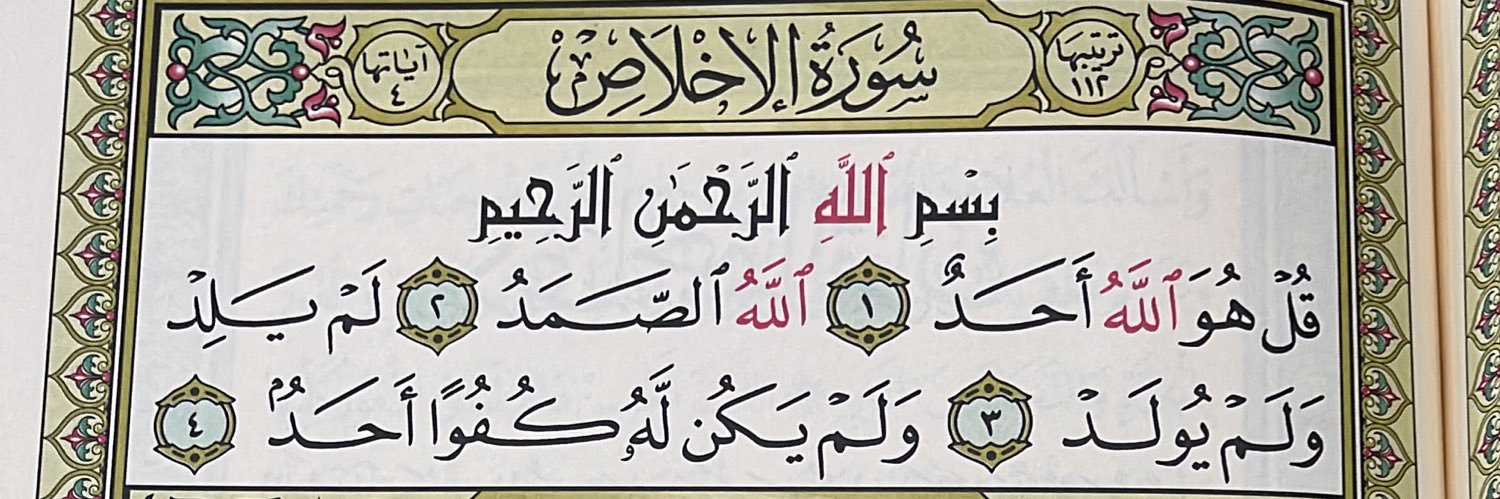 ترتيبها ١١٢
سُورَةُ الإِخْلَاصِ
آيَاتها ٤
بِسْمِ ٱللَّهِ ٱلرَّحْمَٰنِ ٱلرَّحِيمِ
قُلْ هُوَ ٱللَّهُ أَحَدٌ ١ ٱللَّهُ ٱلصَّمَدُ ٢ لَمْ يَلِدْ
وَلَمْ يُولَدْ ٣ وَلَمْ يَكُن لَّهُۥ كُفُوًا أَحَدٌۢ ٤